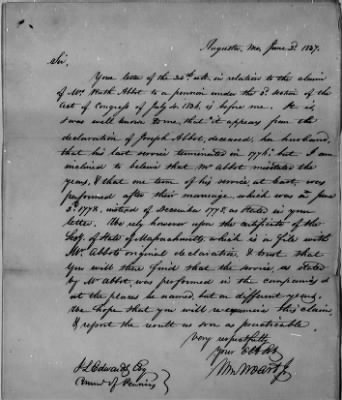 Augusta, Me, June 3d. 1837.
Sir.
Your letter of the 22d ult. in relation to the claim
of Mrs. Ruth Abbot to a pension under the 3d. section of the
Act of Congress of July 4. 1836 is before me. It is,
& was well known to me, that it appears from the
declaration of Joseph Abbot, deceased, her husband,
that his last service terminated in 1776; but I am
inclined to believe that Mr Abbot mistakes the
years, & that one term of his service, at least, was
performed after their marriage, which was in June
3d. 1778, instead of December 1775 as stated in your
letter. We rely however upon the certificate of the
Secy. of State of Massachusetts, which is on file with
Mr. Abbot's original declaration, & trust that
you will there find that the service, as stated
by Mr Abbot was performed in the companies &
at the places he named, but in different years.
We hope that you will re-examine this claim,
& report the result as soon as practicable.
Very respectfully
Your Obt St
J L Edwards Esq
Wm